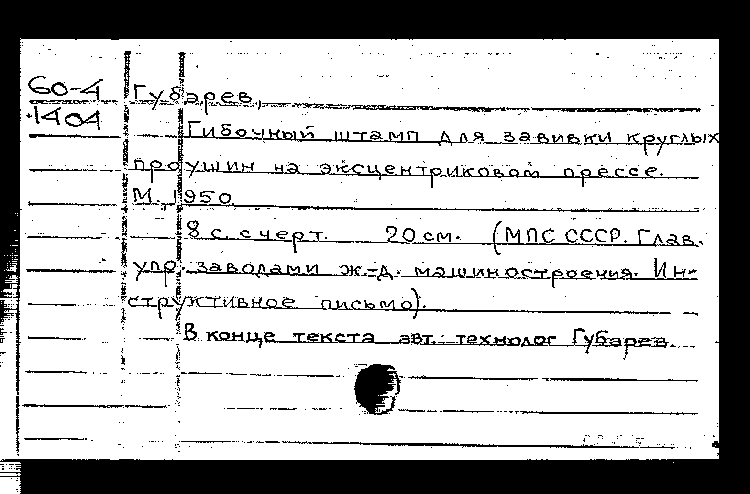 60-4 Губарев,
1404
Гибочный штамп для завивки круглых
проушин на эксцентриковом прессе.
М., 1950.
8 с. с черт. 20 см. (МПС СССР. Глав.
упр. заводами ж.-д. машиностроения. Ин-
структивное письмо).
В конце текста авт.: технолог Губарев.